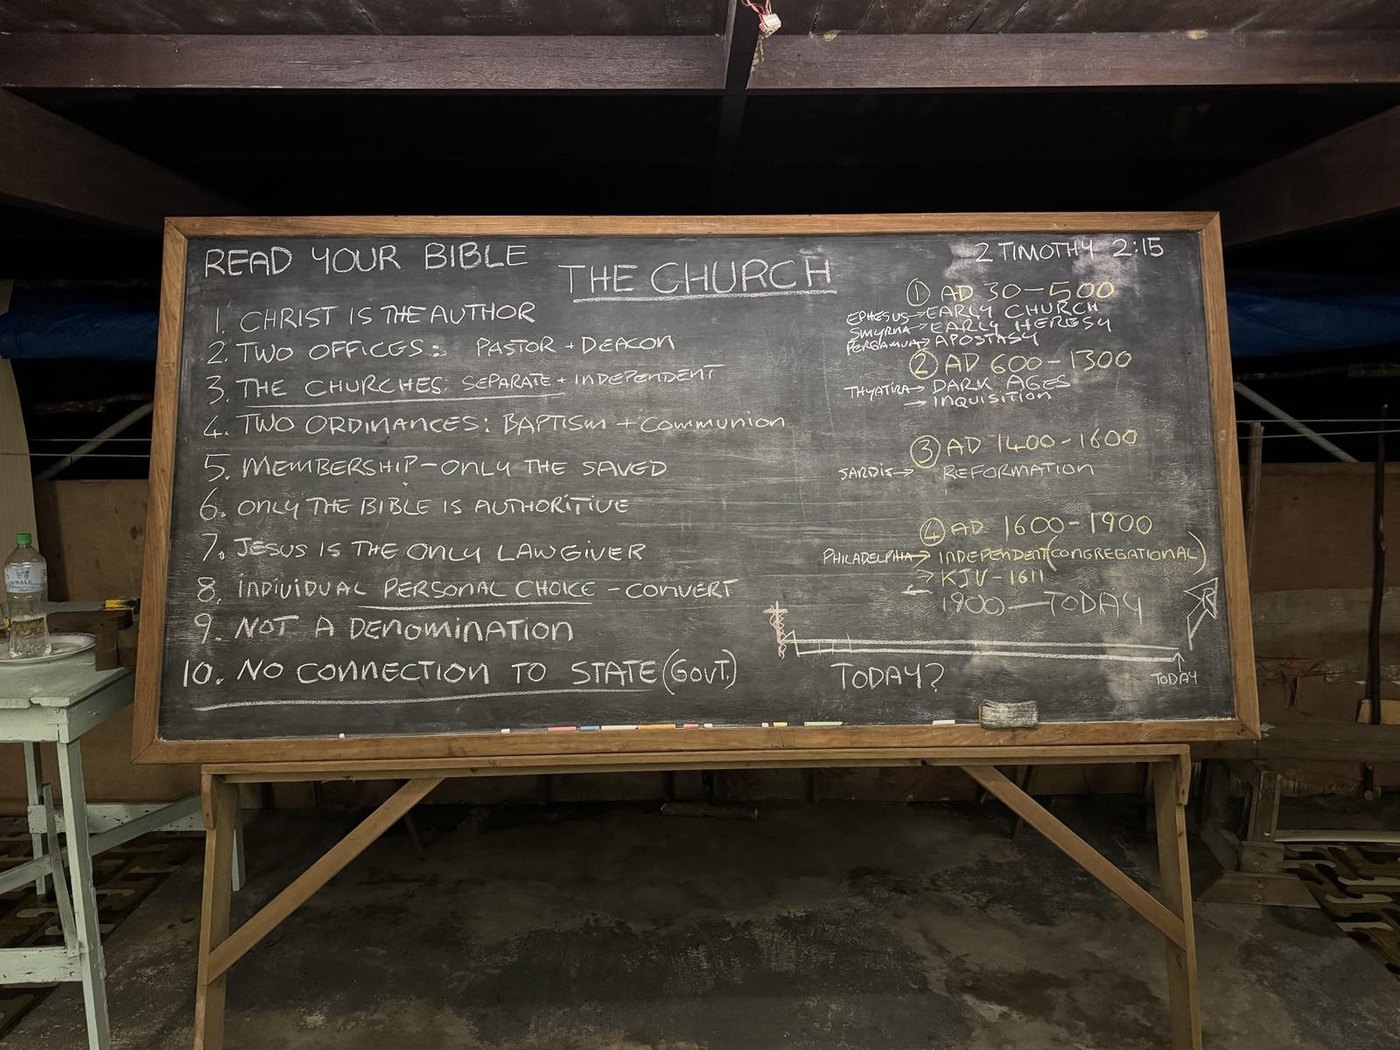 READ YOUR BIBLE
THE CHURCH
1. CHRIST IS THE AUTHOR
2. TWO OFFICES: PASTOR + DEACON
3. THE CHURCHES: SEPARATE + INDEPENDENT
4. TWO ORDINANCES: BAPTISM + COMMUNION
5. MEMBERSHIP - ONLY THE SAVED
6. ONLY THE BIBLE IS AUTHORITIVE
7. JESUS IS THE ONLY LAWGIVER
8. INDIVIDUAL PERSONAL CHOICE - CONVERT
9. NOT A DENOMINATION
10. NO CONNECTION TO STATE (GOVT.)
2 TIMOTHY 2:15
① AD 30-500
EPHESUS → EARLY CHURCH
SMYRNA → EARLY HERESY
PERGAMUM → APOSTASY
② AD 600-1300
THYATIRA → DARK AGES
→ INQUISITION
③ AD 1400-1600
SARDIS → REFORMATION
④ AD 1600-1900
PHILADELPHIA → INDEPENDENT (CONGREGATIONAL)
→ KJV-1611
1900 — TODAY
R
TODAY
TODAY?